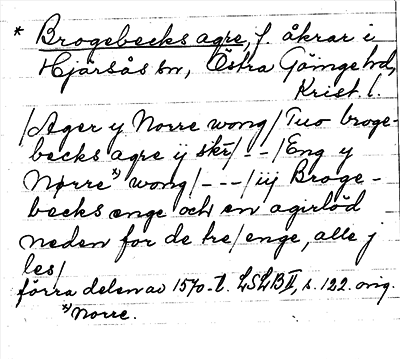 * Brogebecks agre, f. åkrar i
Hjärsås sn, Östra Göinge hd,
Krist. l.
/Ager y Norre wong/ Tuo broge-
becks agre ÿ skr/ - - /Eng y
Nørre *) wong/ - - - /iij Broge-
becks enge och en agerlød
neden for de tre/enge, alle j
les/
förra delen av 1570-t. LSLB II, s. 122. orig.
*) Norre.